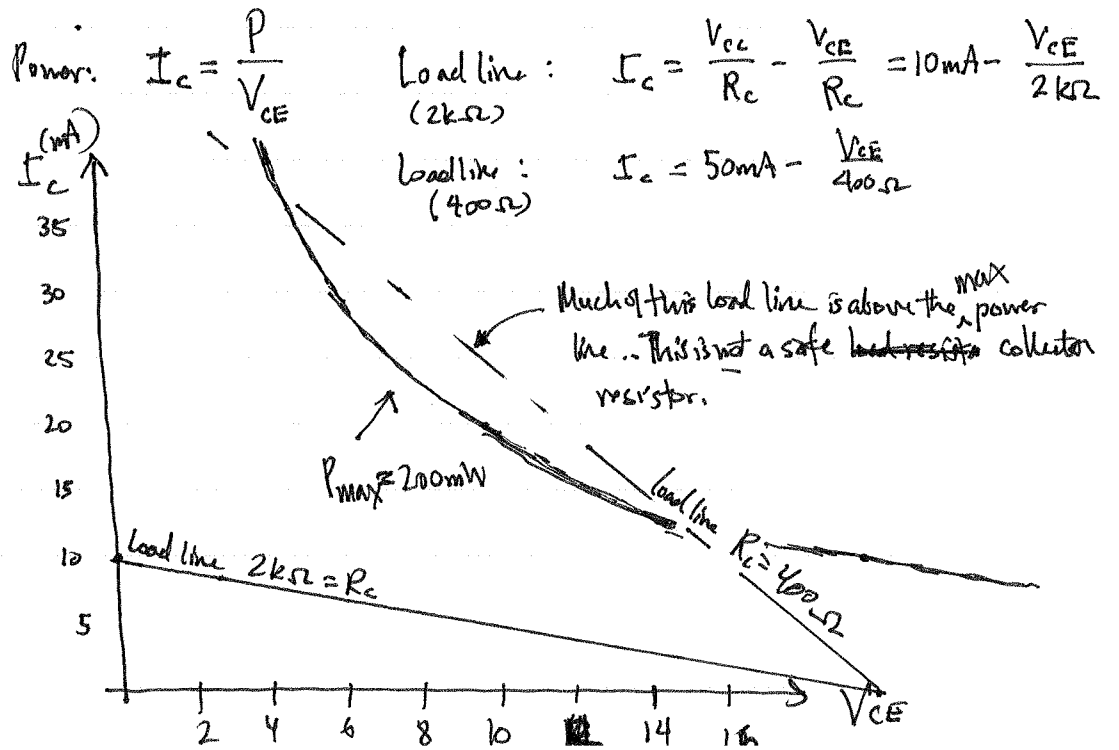 Power: I_c = P / V_CE
Load line : I_c = V_cc / R_c - V_CE / R_c = 10mA - V_CE / 2kΩ
(2kΩ)
Load line : I_c = 50mA - V_CE / 400Ω
(400Ω)
I_c (mA)
35
30
25
20
15
10
5
Much of this load line is above the max power
line .. This is not a safe collector
resistor.
P_max = 200mW
load line R_c = 400Ω
Load line 2kΩ = R_c
V_CE
2 4 6 8 10 14 16